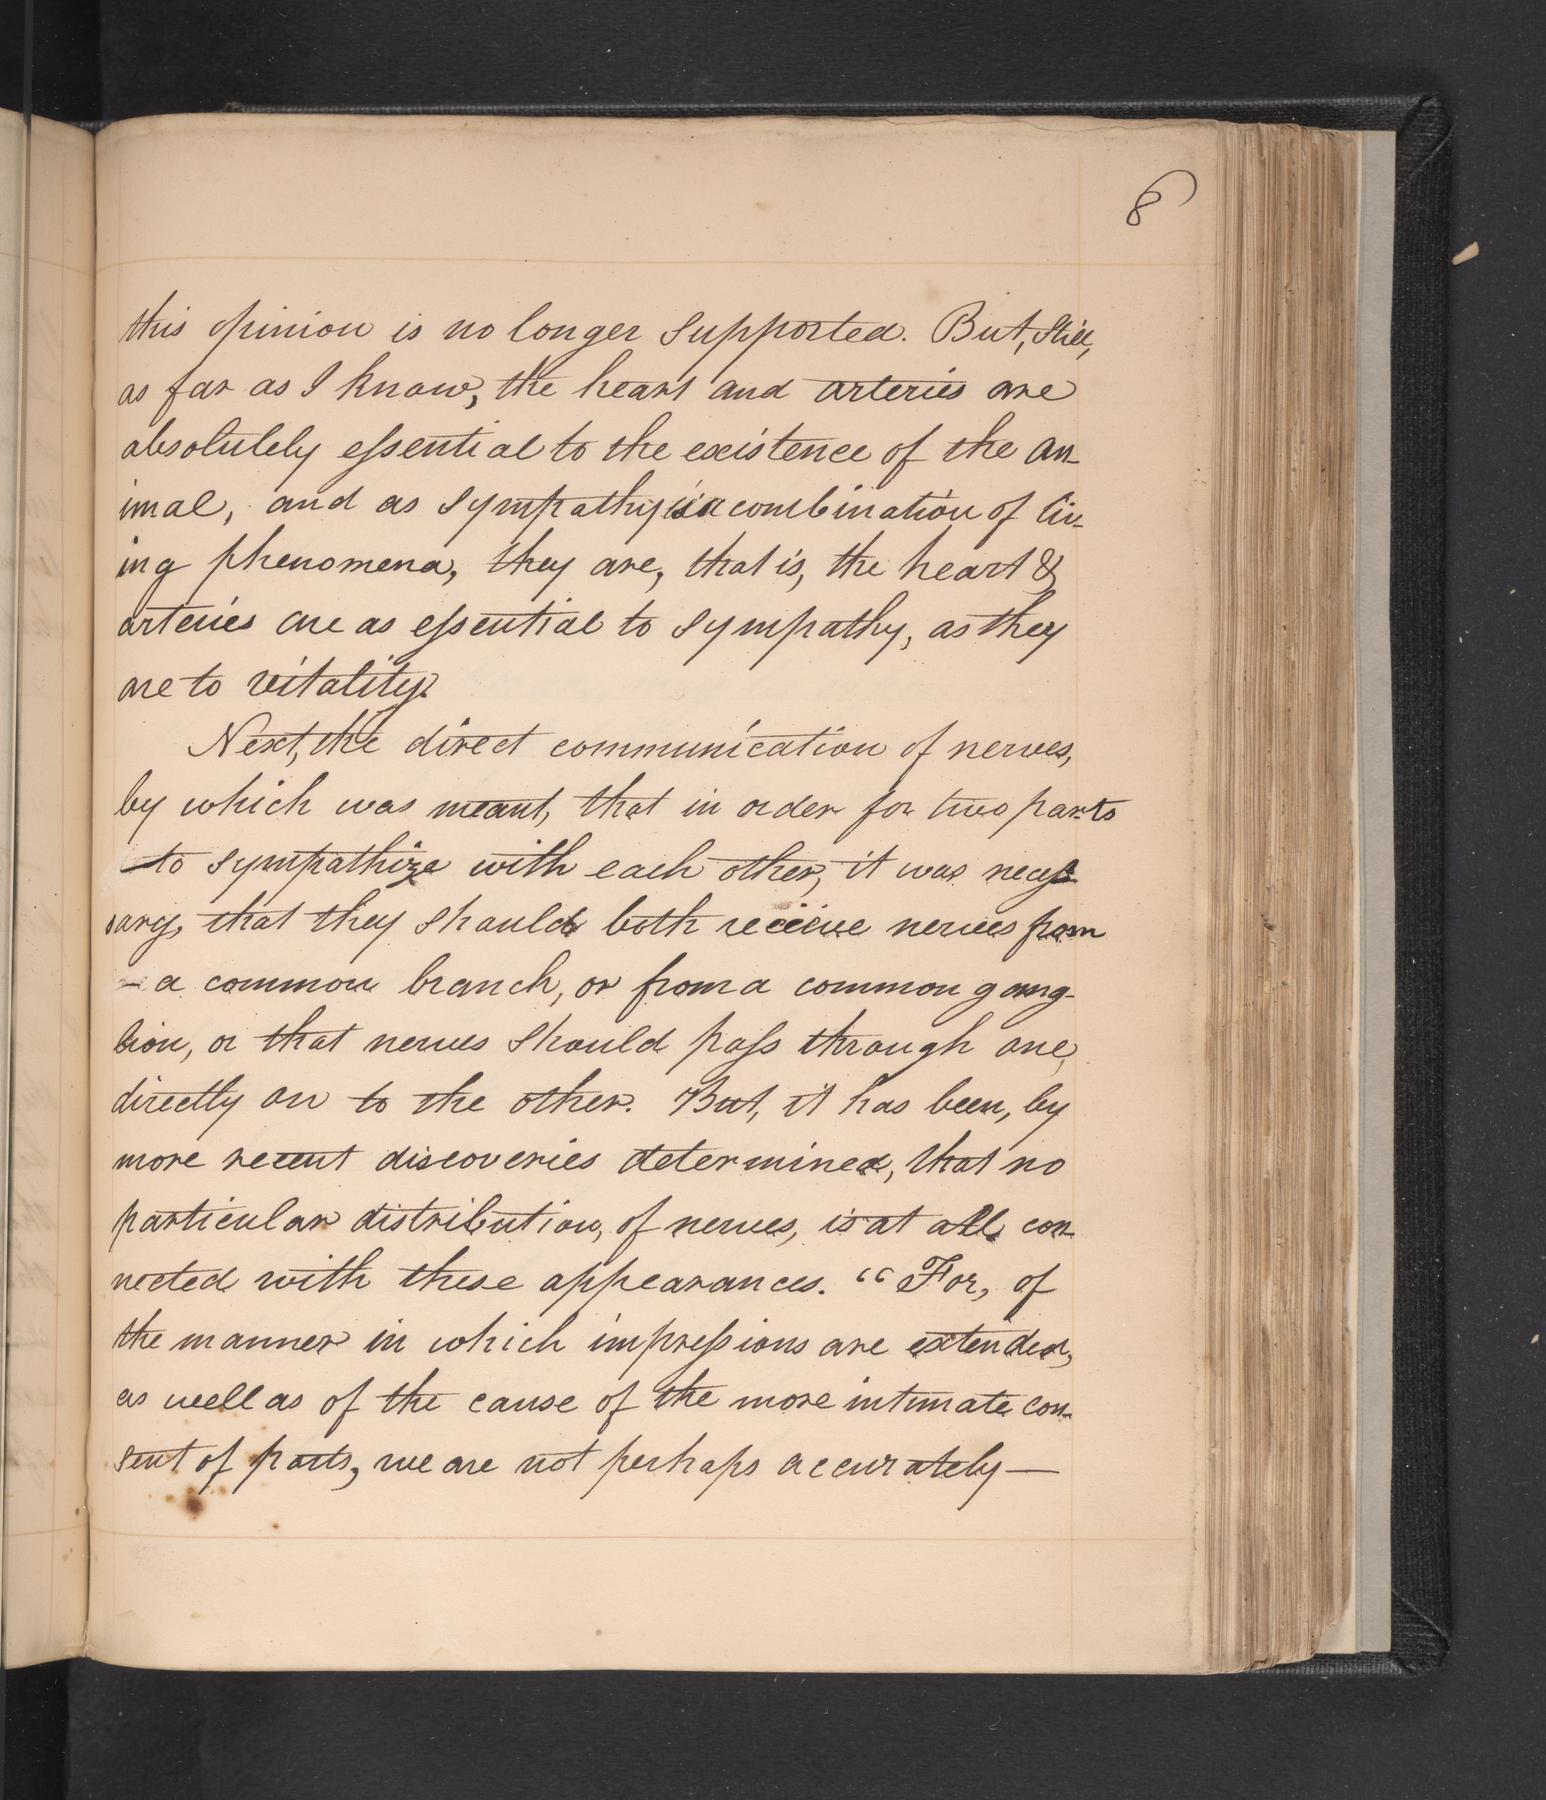 8
this opinion is no longer supported. But, still,
as far as I know, the heart and arteries are
absolutely essential to the existence of the an-
imal, and as sympathy is a combination of liv-
ing phenomena, they are, that is, the heart &
arteries are as essential to sympathy, as they
are to vitality.
Next, the direct communication of nerves,
by which was meant, that in order for two parts
to sympathize with each other, it was necess
sary, that they should both receive nerves from
- a common branch, or from a common gang-
lion, or that nerves should pass through one,
directly on to the other. But, it has been, by
more recent discoveries determined, that no
particular distribution, of nerves, is at all con-
nected with these appearances. "For, of
the manner in which impressions are extended,
as well as of the cause of the more intimate con-
sent of parts, we are not perhaps accurately —